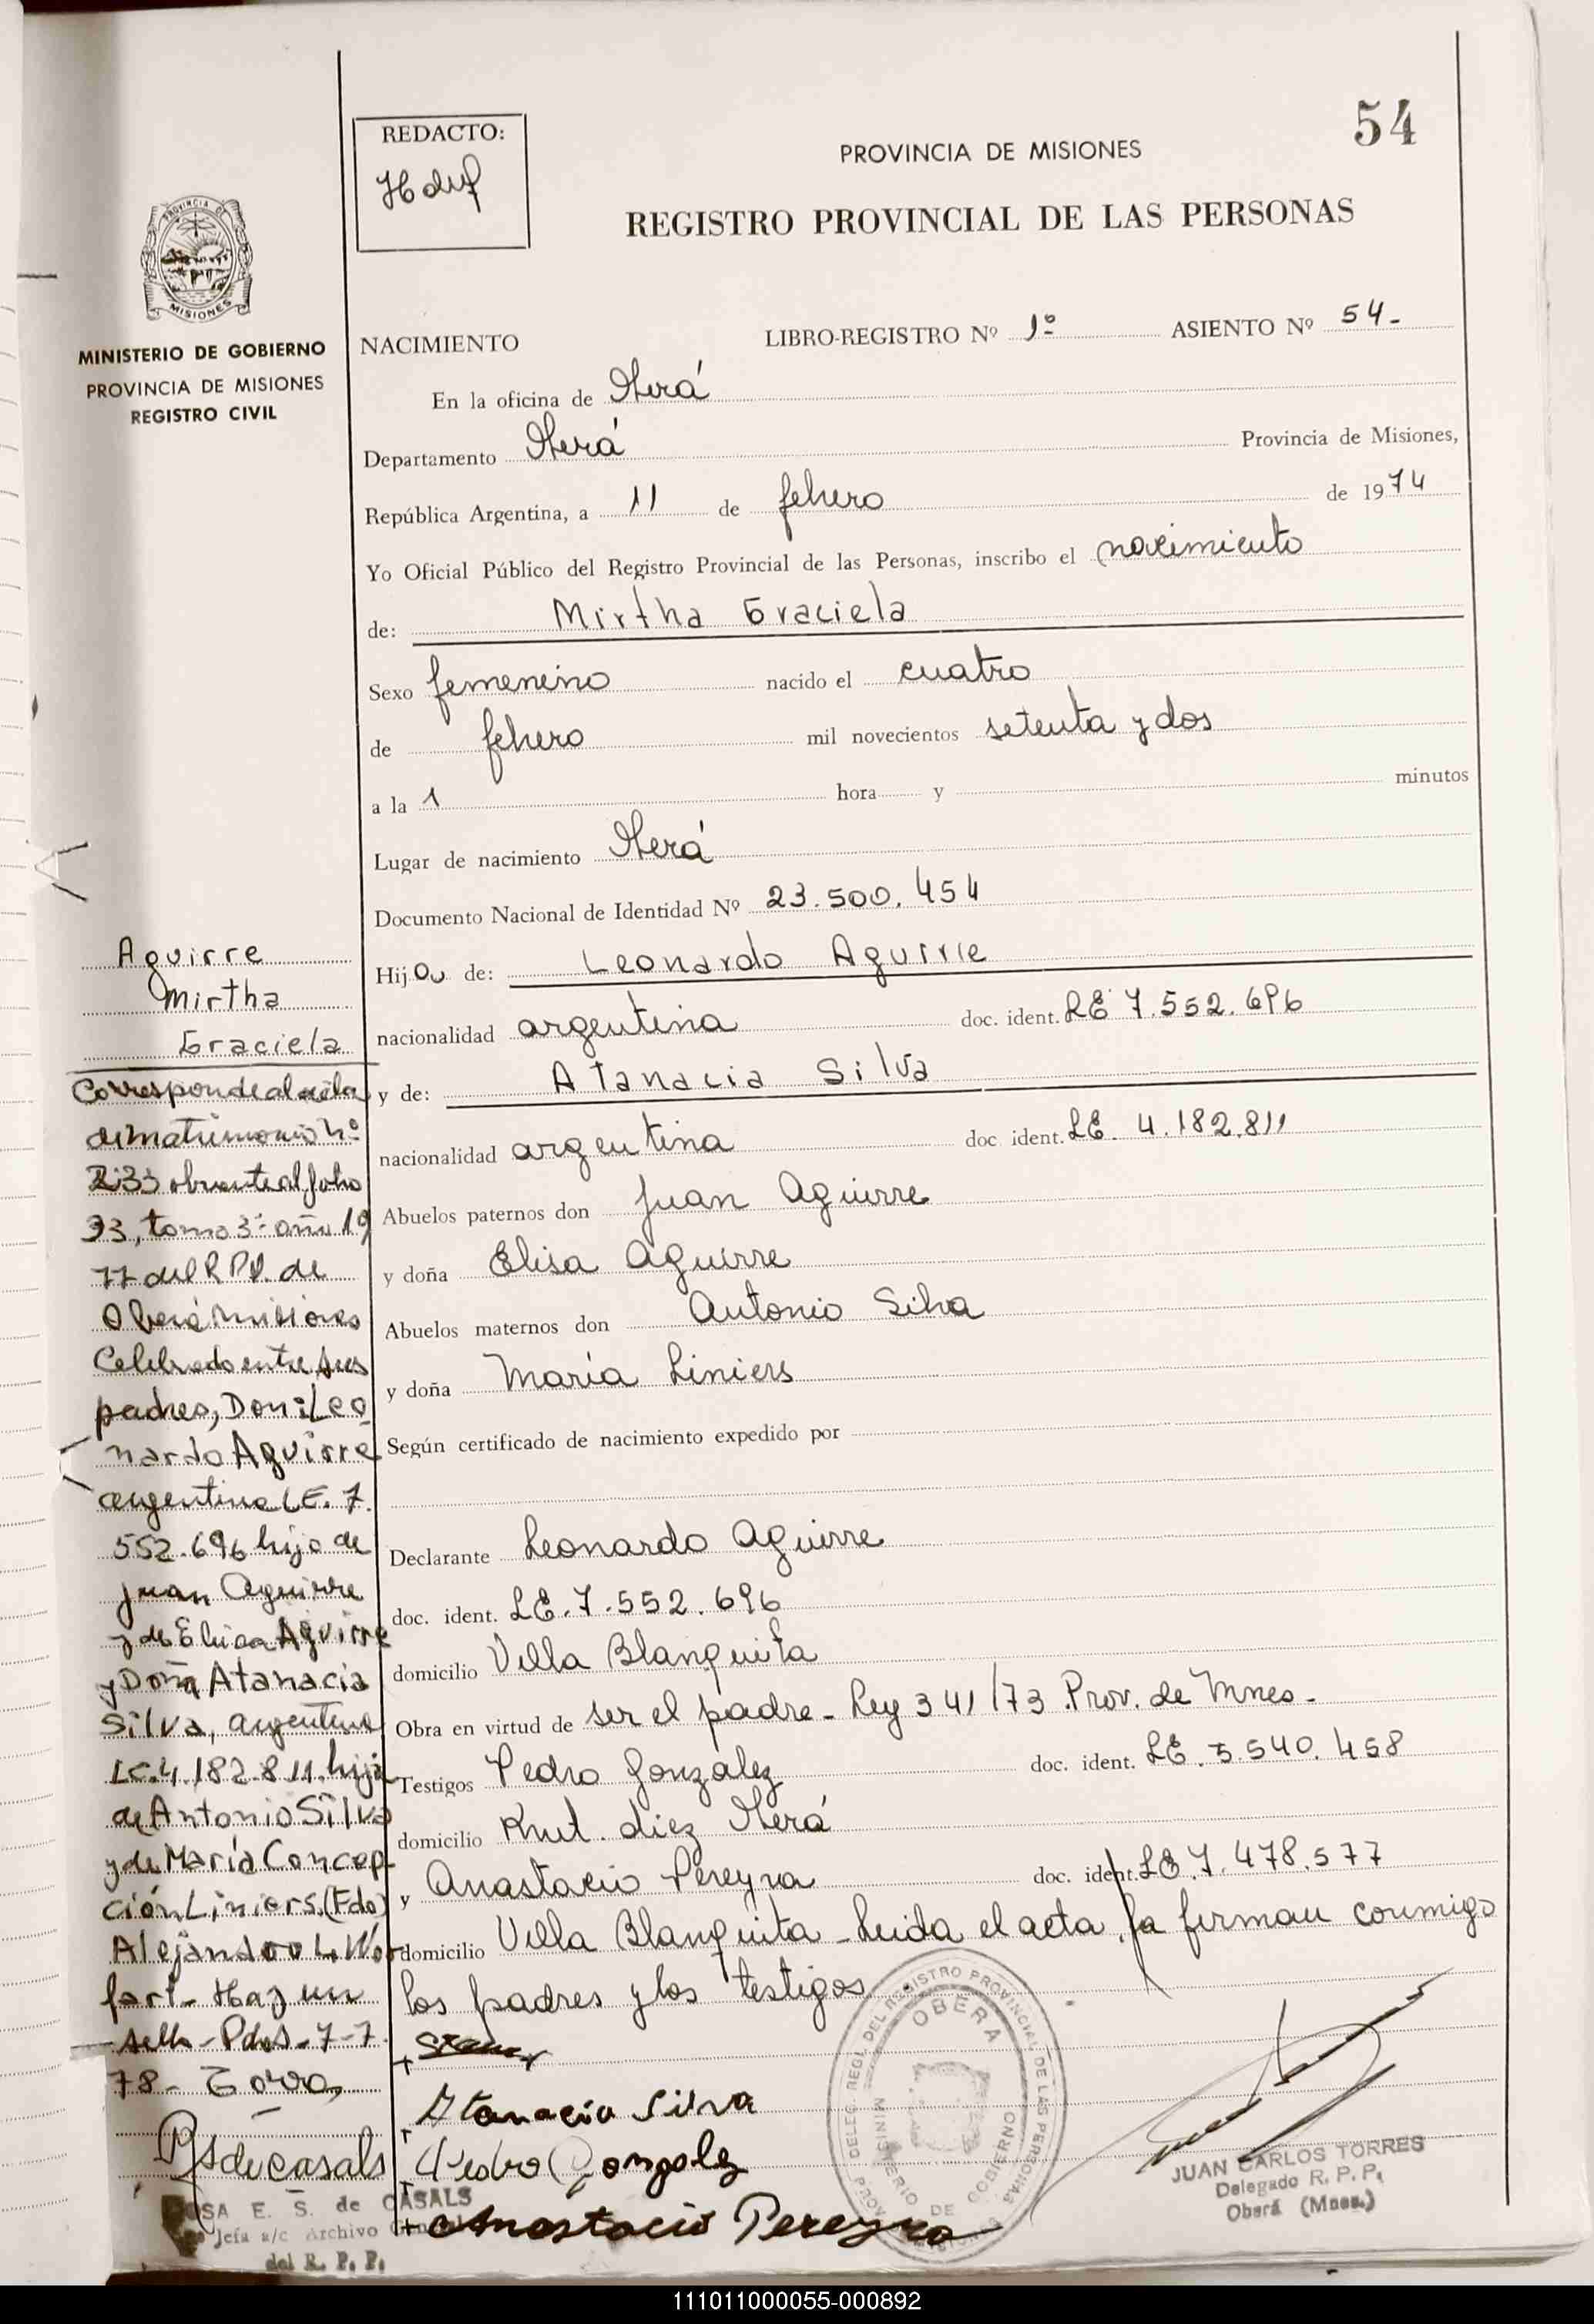 54
REDACTO:
PROVINCIA DE MISIONES
REGISTRO PROVINCIAL DE LAS PERSONAS
PROVINCIA DE
MISIONES
MINISTERIO DE GOBIERNO
PROVINCIA DE MISIONES
REGISTRO CIVIL
NACIMIENTO LIBRO-REGISTRO Nº 1º ASIENTO Nº 54-
En la oficina de Oberá
Departamento Oberá Provincia de Misiones,
República Argentina, a 11 de febrero de 1974
Yo Oficial Público del Registro Provincial de las Personas, inscribo el nacimiento
de: Mirtha Graciela
Sexo femenino nacido el cuatro
de febrero mil novecientos setenta y dos
a la 1 hora y minutos
Lugar de nacimiento Oberá
Documento Nacional de Identidad Nº 23.500.454
Hija de: Leonardo Aguirre
nacionalidad argentina doc. ident. LE 7.552.696
y de: Atanacia Silva
nacionalidad argentina doc. ident. LE. 4.182.811
Abuelos paternos don Juan Aguirre
y doña Elisa Aguirre
Abuelos maternos don Antonio Silva
y doña María Liniers
Según certificado de nacimiento expedido por
Declarante Leonardo Aguirre
doc. ident. LE.7.552.696
domicilio Villa Blanquita
Obra en virtud de ser el padre - Ley 341/73 Prov. de Mnes-
Testigos Pedro González doc. ident. LE.5.540.458
domicilio Kmt. diez Oberá
y Anastacio Pereyra doc. ident. LE 7.478.577
domicilio Villa Blanquita - Leida el acta, la firman conmigo
los padres y los testigos
Atanacia Silva
Pedro Gonzalez
Anastacio Pereyra
Aguirre
Mirtha
Graciela
Corresponde al acta
de matrimonio Nº
233 obrante al folio
33, tomo 3º año 19
77 del R.P.P. de
Oberá Misiones
Celebrado entre sus
padres, Don: Leo
nardo Aguirre
argentino LE. 7.
552.696 hijo de
Juan Aguirre
y de Elisa Aguirre
y Doña Atanacia
Silva, argentina
LC.4.182.811 hija
de Antonio Silva
y de María Concep-
ción Liniers. (Fdo)
Alejandro L. Wor
fart - Hay un
sello - Pdas - 7-7-
78-
RS de Casals
ROSA E. S. de CASALS
Jefa a/c Archivo General
del R. P. P.
DELEG. REGL. DEL REGISTRO PROVINCIAL DE LAS PERSONAS
OBERA
MINISTERIO DE GOBIERNO
JUAN CARLOS TORRES
Delegado R. P. P.
Oberá (Mnes.)
111011000055-000892